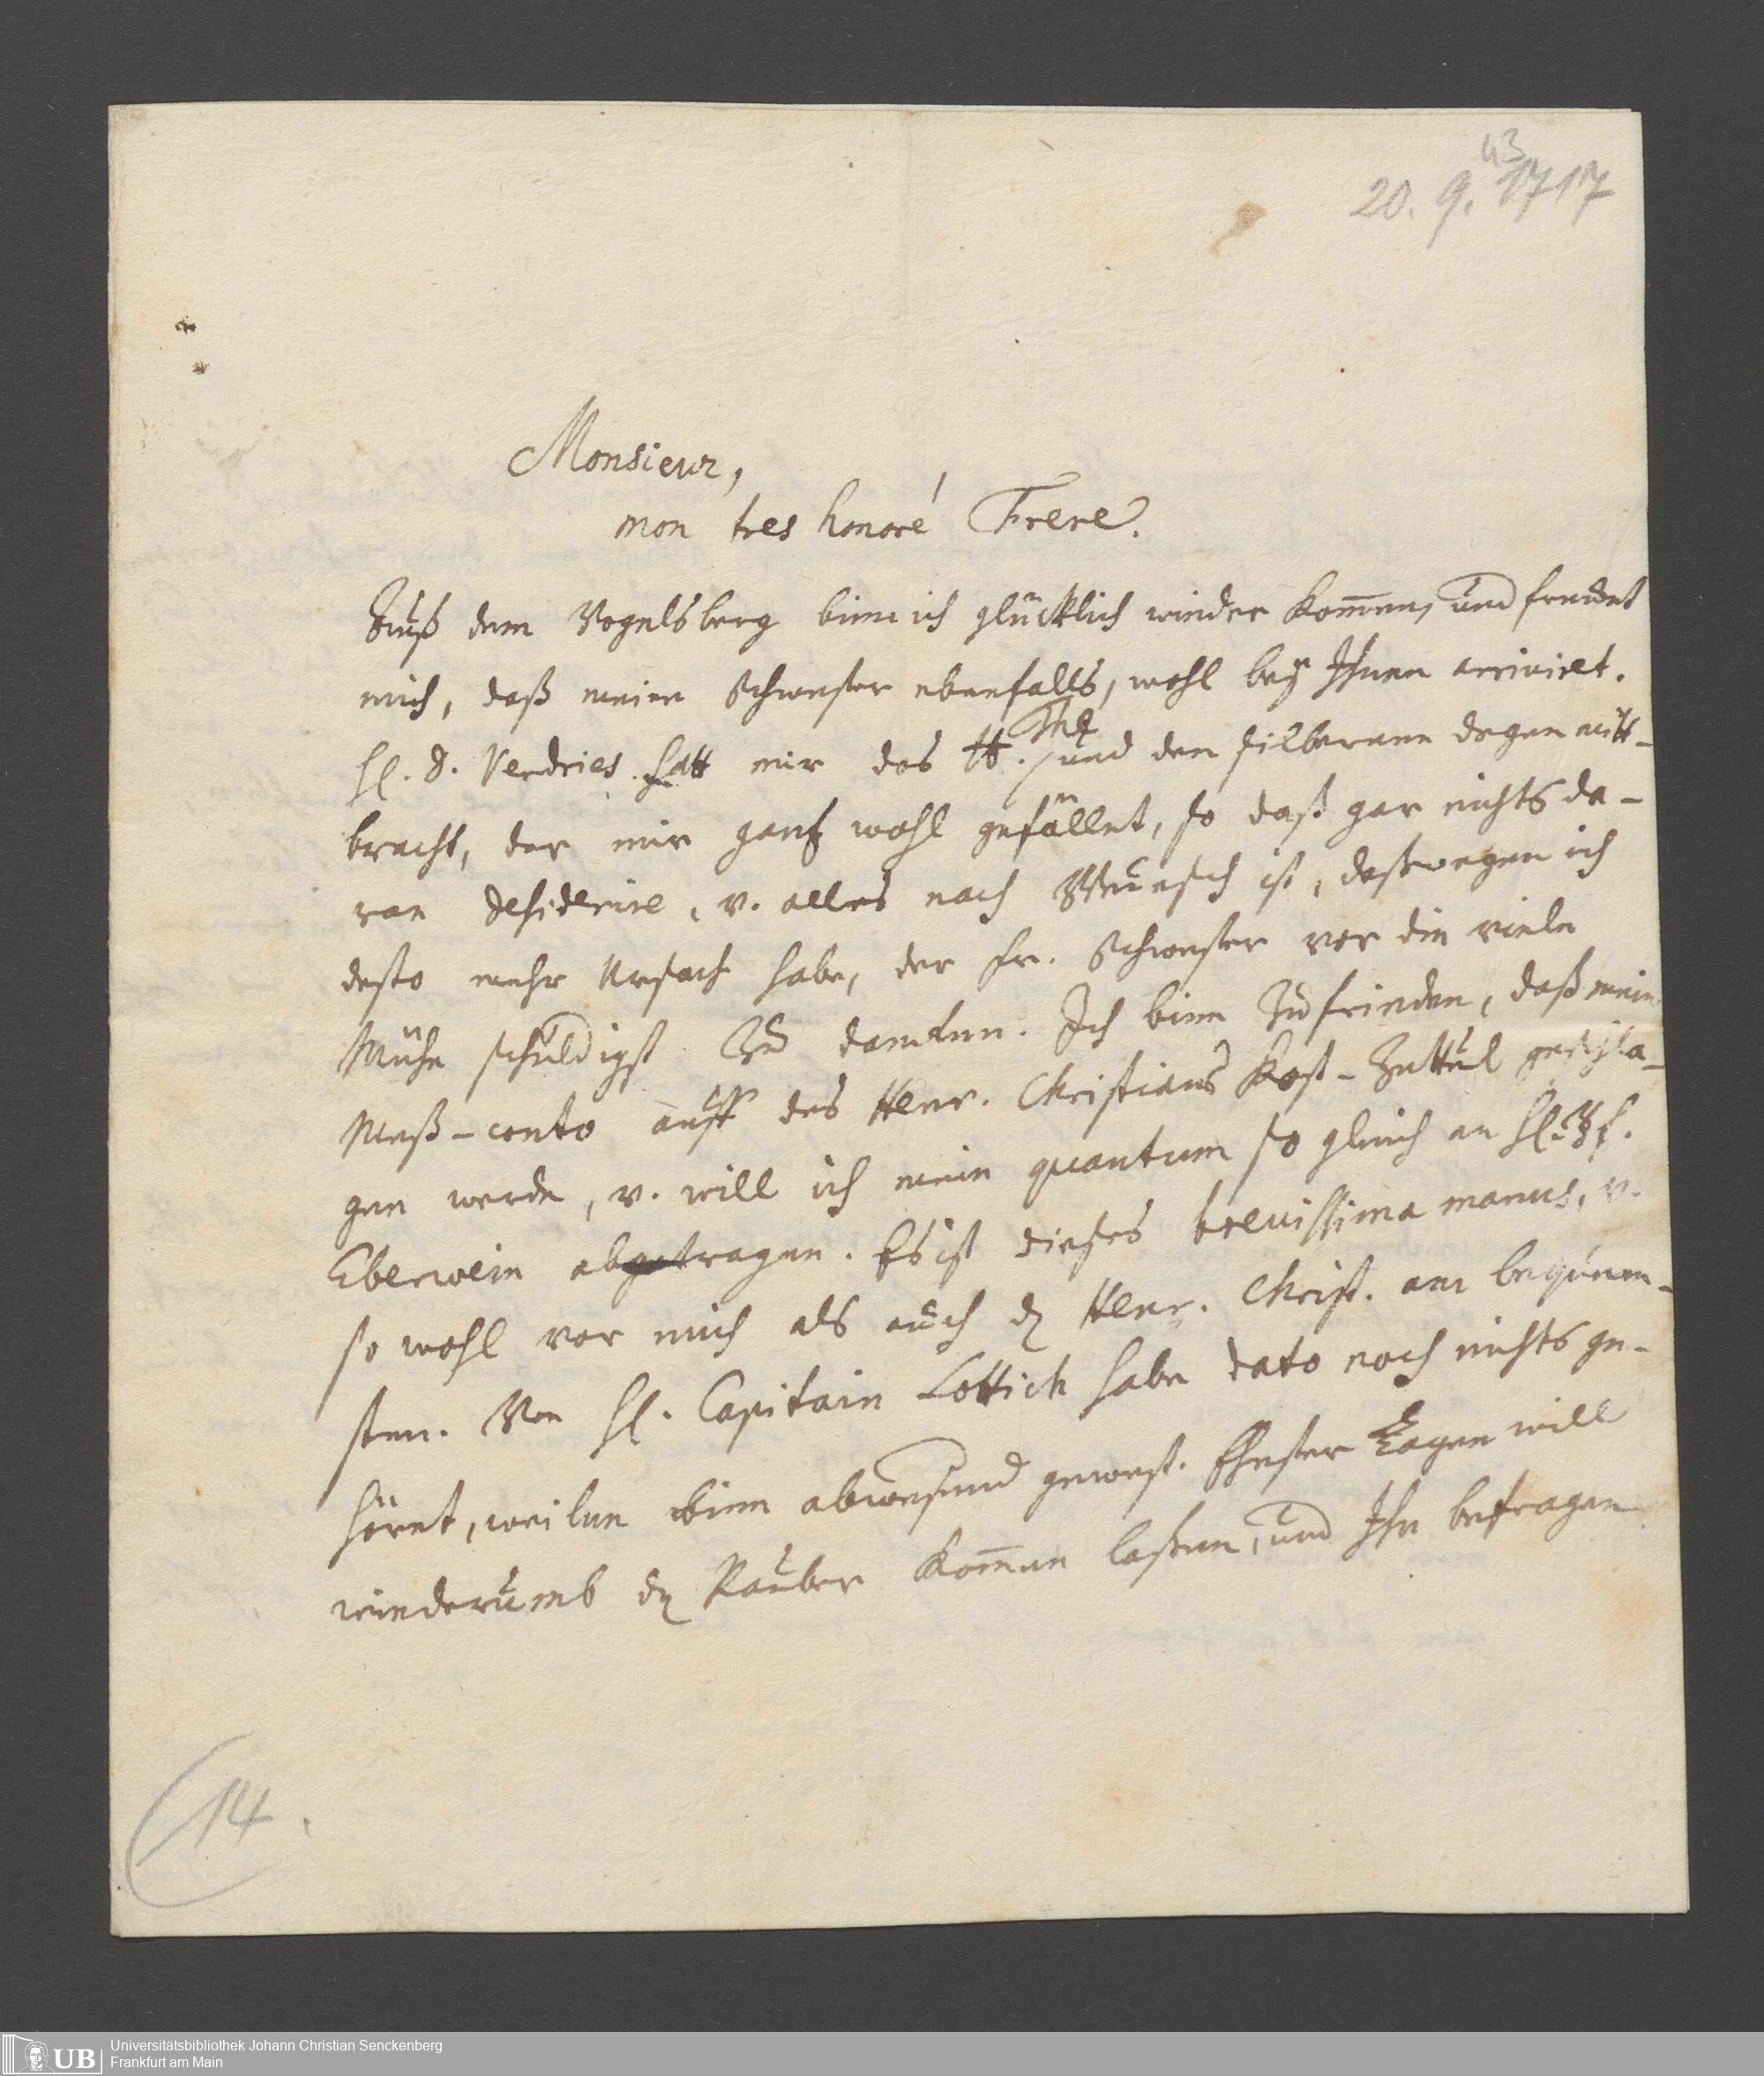 43
20. 9. 1717
Monsieur,
mon tres honoré Frere.
Auß dem Vogelsberg binn ich glücklich wieder kom̄en, und freuet
mich, daß meine Schwester ebenfalls, wohl beÿ Ihnen arrivirt.
H. D. Verdries hatt mir das tt. und den silbernen degen mitt-
bracht, der mir gantz wohl gefället, so daß gar nichts da-
ran desiderire, v. alles nach Wunsch ist, deßwegen ich
desto mehr Ursach habe, der fr. Schwester vor die viele
Mühe schuldigst zu dancken. Ich binn zufrieden, daß mein
Meß-conto auff des Henr. Christians Kost-Zettul geschla-
gen werde, v. will ich mein quantum so gleich an H.
Eberwein abgetragen. Es ist dieses brevissima manus, v.
so wohl vor mich als auch d. Henr. Christ. am bequem-
sten. Von H. Capitain Lottich habe dato noch nichts ge-
höret, weilen binn abwesend gewest. Ehester Tagen will
wiederumb d. Rauber kom̄en laßen, und Ihn befragen
14.
UB
Universitätsbibliothek Johann Christian Senckenberg
Frankfurt am Main